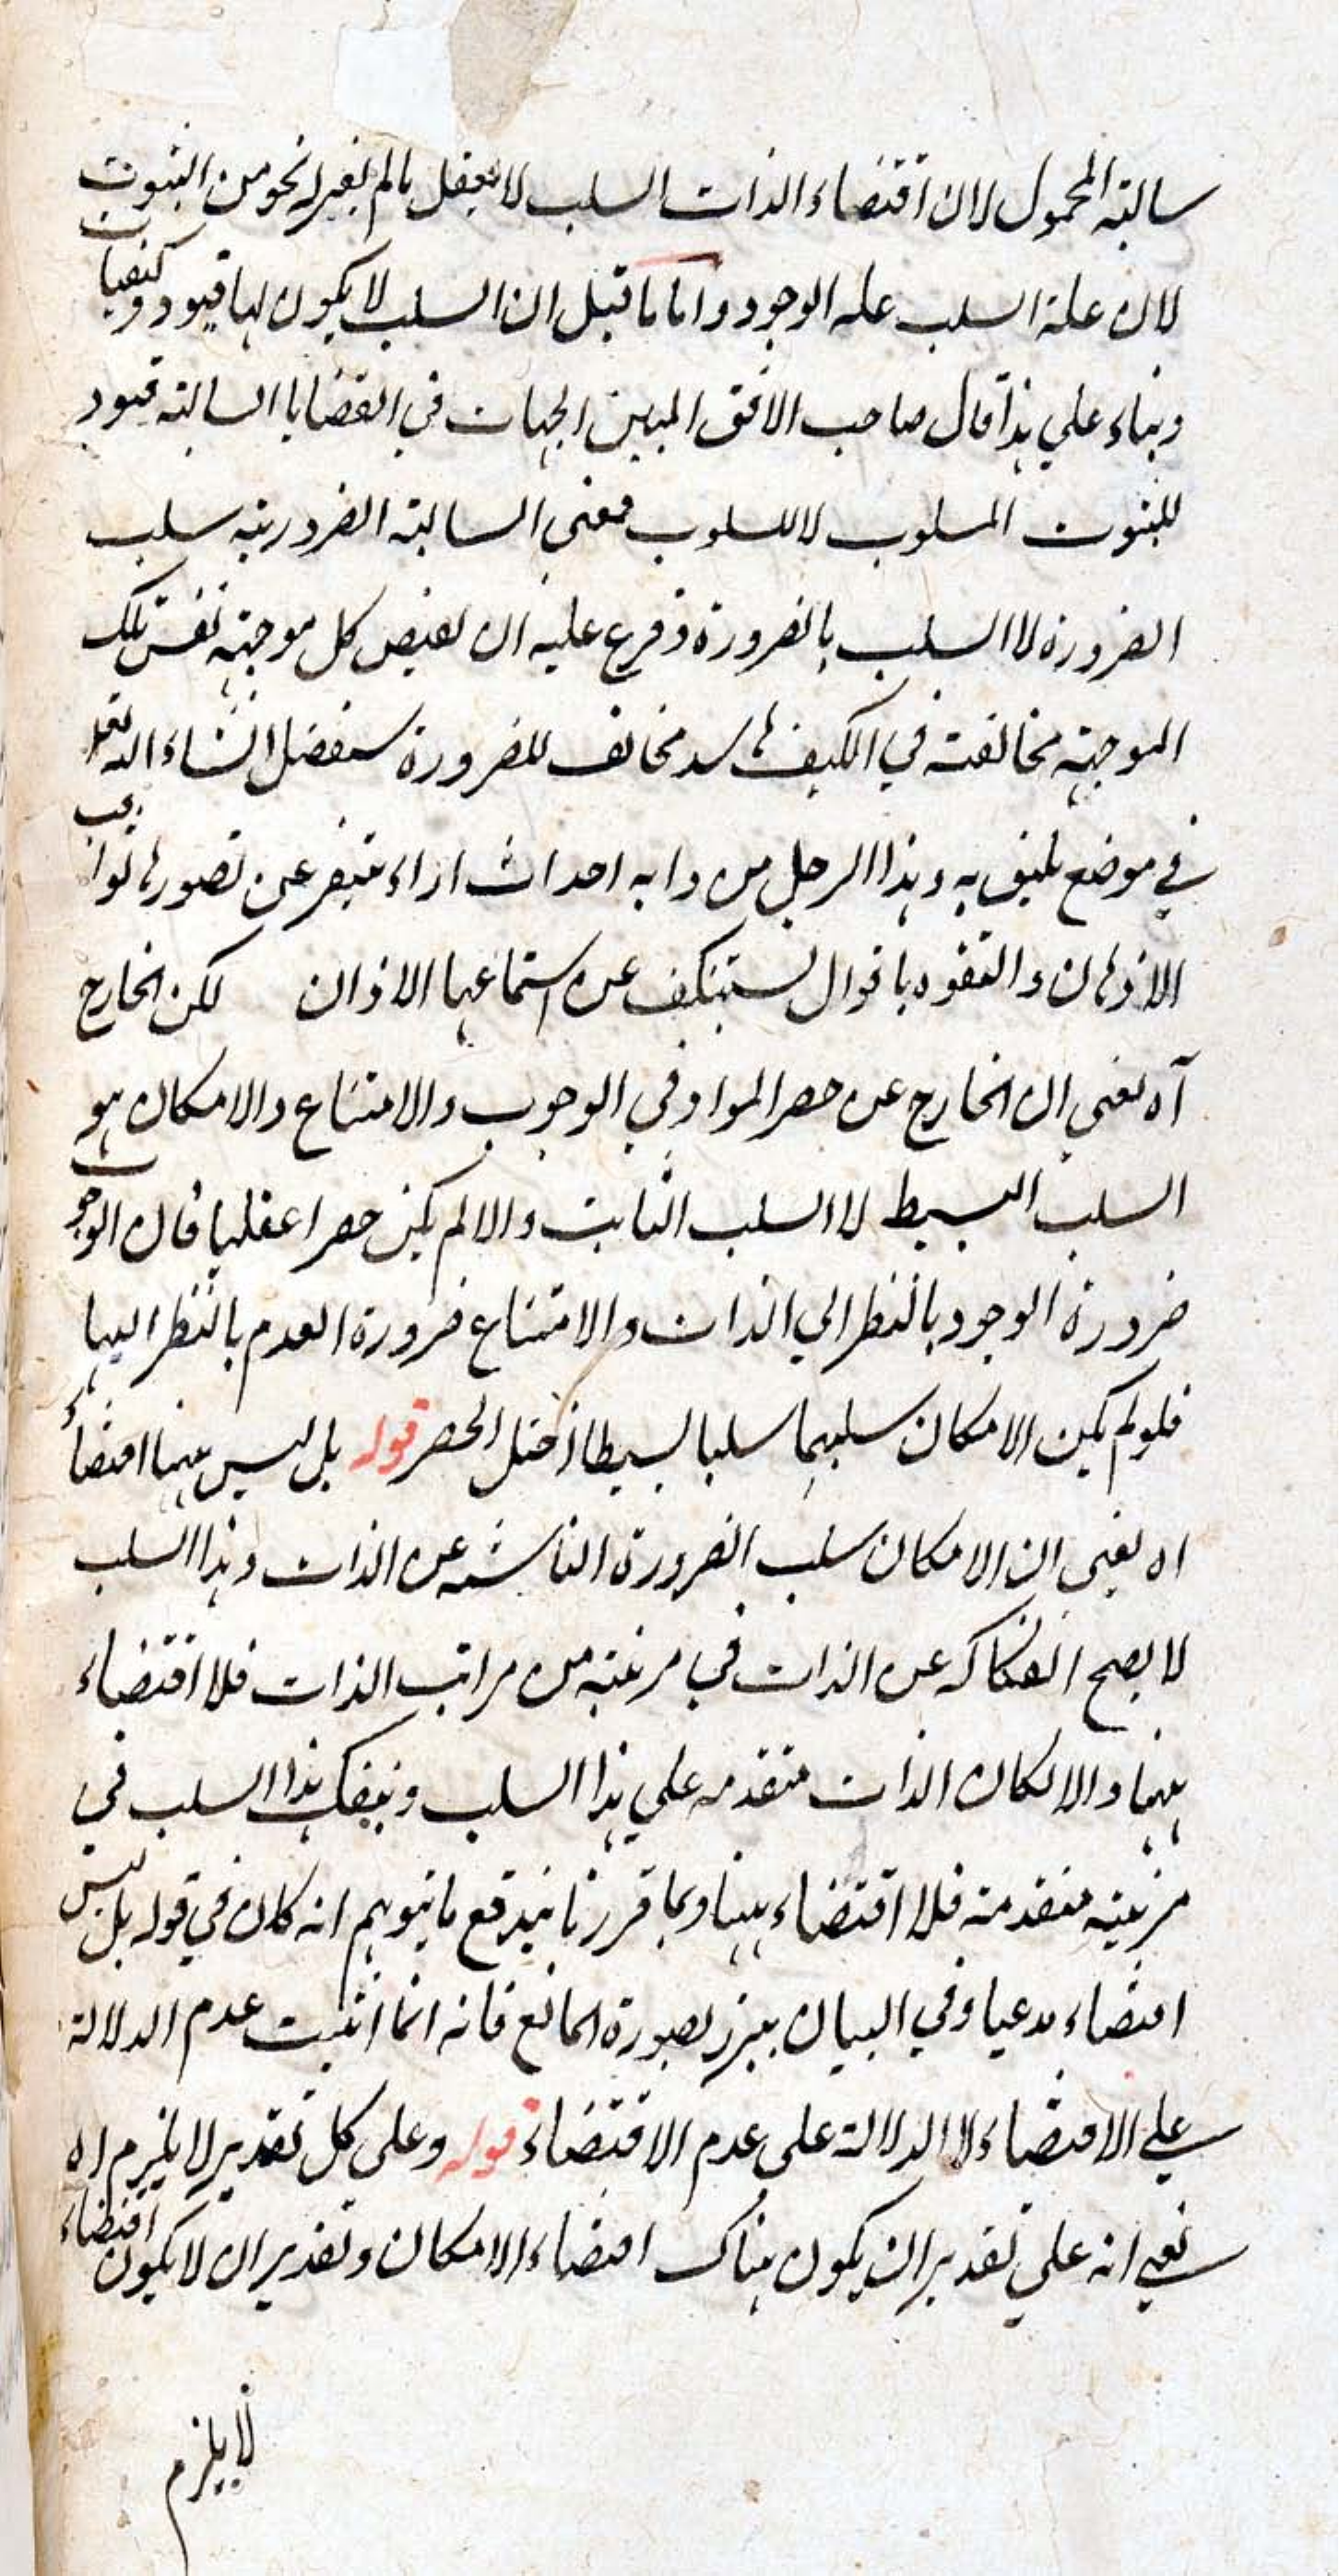 سالبة المحمول لان اقتضاء الذات السلب لا يعقل مالم يعتبر له نحو من الثبوت
لان علة السلب علة الوجود واما ما قيل ان السلب لا يكون لها قيود وكيفيات
وبناء علي هذا قال صاحب الافق المبين الجهات في القضايا السالبة قيود
للثبوت المسلوب لا للسلوب فمعنى السالبة الضرورية سلب
الضرورة لا السلب بالضرورة وفرع عليه ان نقيض كل موجهة نفس تلك
الموجهة مخالفته في الكيف فاسد مخالف للضرورة سنفصل انشاء الله تعالى
في موضع يليق به وهذا الرجل من دابه احداث اراء يتنفر عن تصورها ثواقب
الاذهان والتفوه باقوال يستنكف عن استماعها الاذان لكن الخارج
آه يعني ان الخارج عن حصر المواد في الوجوب والامتناع والامكان هو
السلب البسيط لا السلب الثابت والا لم يكن حصرا عقليا فان الوجوب
ضرورة الوجود بالنظر الي الذات والامتناع ضرورة العدم بالنظر اليها
فلو لم يكن الامكان سلبهما سلبا بسيطا اختل الحصر قوله بل ليس ههنا اقتضاء
اه يعني ان الامكان سلب الضرورة الناشئة عن الذات وهذا السلب
لا يصح انفكاكه عن الذات في مرتبة من مراتب الذات فلا اقتضاء
ههنا والا لكان الذات متقدمة علي هذا السلب وينفك هذا السلب في
مرتبة متقدمة فلا اقتضاء ههنا وبما قررنا يندفع ما يتوهم انه كان في قوله بل ليس
اقتضاء مدعيا وفي البيان يبرز بصورة المانع فانه انما اثبت عدم الدلالة
علي الاقتضاء لا الدلالة على عدم الاقتضاء قوله وعلى كل تقدير لا يلزم اه
يعني انه علي تقدير ان يكون هناك اقتضاء الامكان وتقدير ان لا يكون اقتضاء
لا يلزم